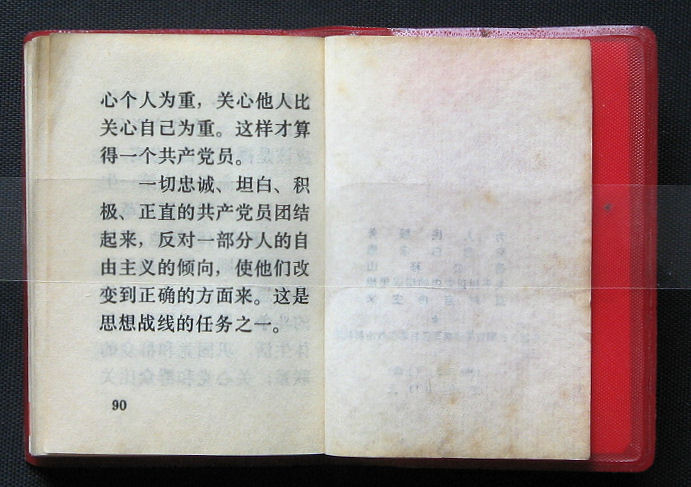 心个人为重，关心他人比
关心自己为重。这样才算
得一个共产党员。
一切忠诚、坦白、积
极、正直的共产党员团结
起来，反对一部分人的自
由主义的倾向，使他们改
变到正确的方面来。这是
思想战线的任务之一。
90